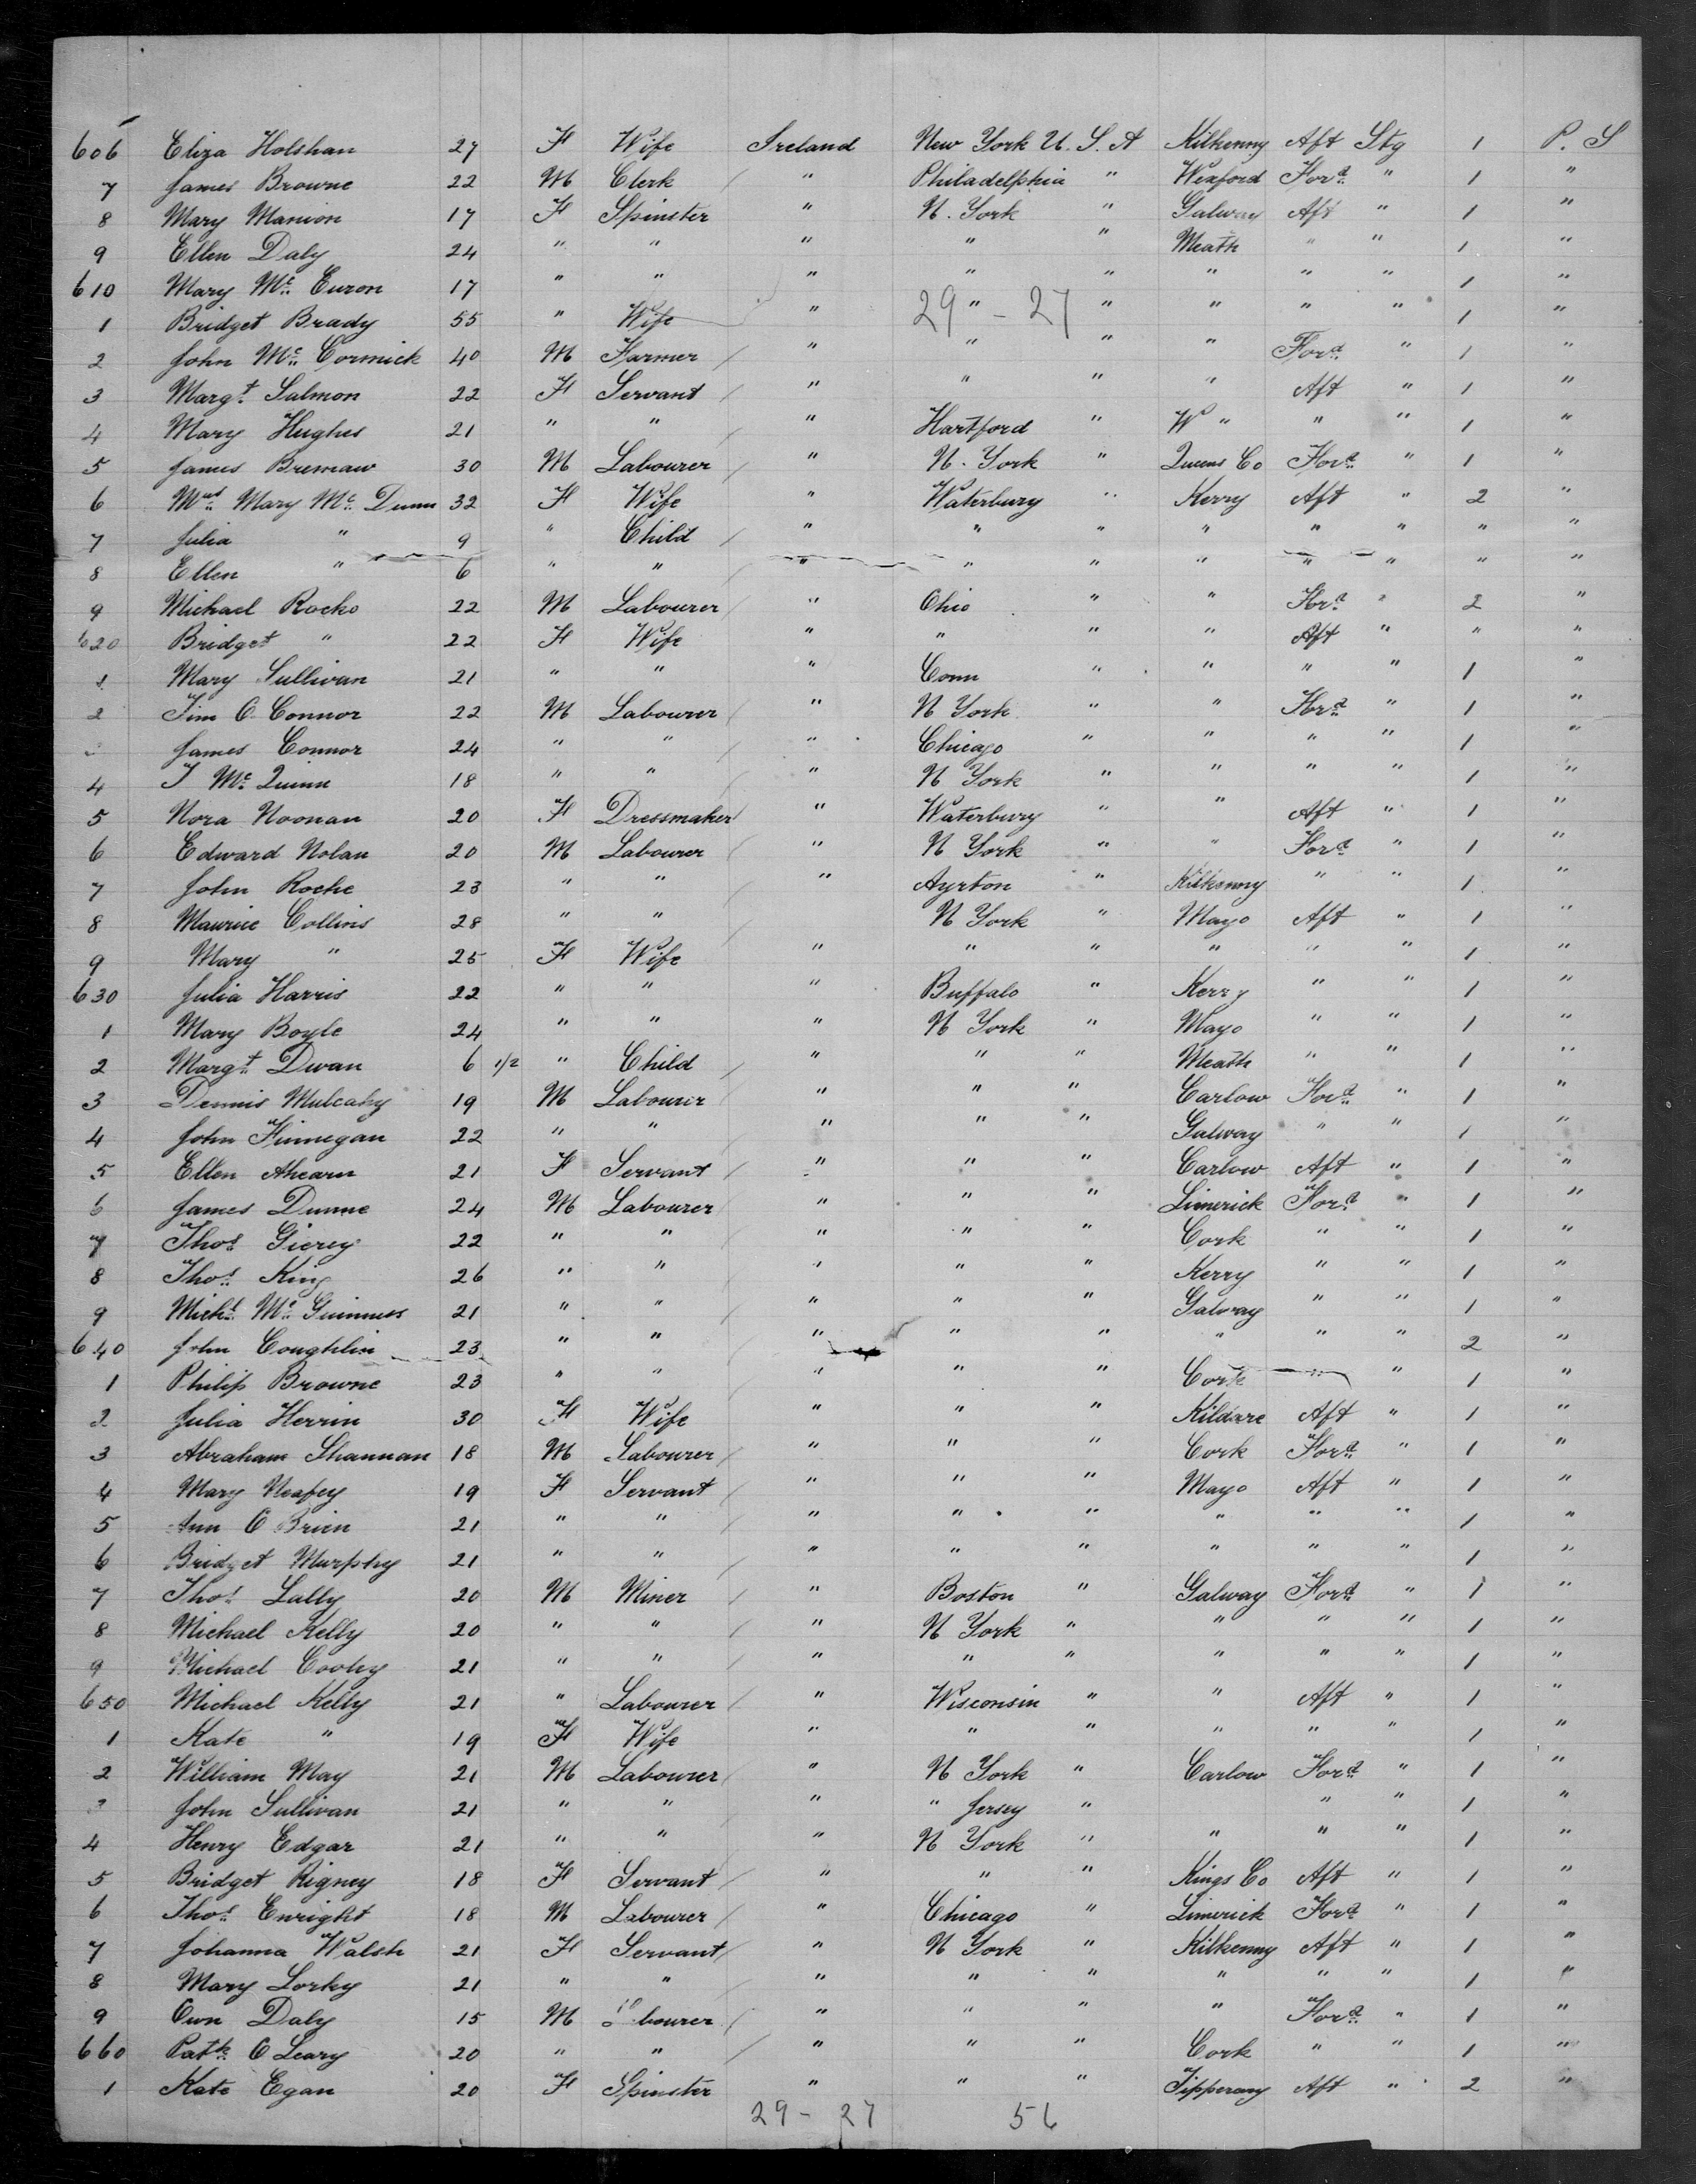 606 Eliza Holshan 27 F Wife Ireland New York U. S. A Kilkenny Aft Stg 1 P. S
7 James Browne 22 M Clerk / " Philadelphia " Wexford Ford " 1 "
8 Mary Manion 17 F Spinster " N. York " Galway Aft " 1 "
9 Ellen Daly 24 " " " " " Meath " " 1 "
610 Mary Mc Euron 17 " " " " " " " " 1 "
1 Bridget Brady 55 " Wife " " " " " " 1 "
29 - 27
2 John Mc Cormick 40 M Farmer / " " " " Ford " 1 "
3 Margt Salmon 22 F Servant / " " " " Aft " 1 "
4 Mary Hughes 21 " " / " Hartford " W " " " 1 "
5 James Bremaw 30 M Labourer / " N. York " Queens Co Ford " 1 "
6 Mrs Mary Mc Dunn 32 F Wife " Waterbury " Kerry Aft " 2 "
7 Julia " 9 " Child / " " " " " " " "
8 Ellen " 6 " " / " " " " " " " "
9 Michael Rocko 22 M Labourer / " Ohio " " Ford " 2 "
620 Bridget " 22 F Wife " " " " Aft " " "
1 Mary Sullivan 21 " " " Conn " " " " 1 "
2 Tim O Connor 22 M Labourer / " N York " " Ford " 1 "
James Connor 24 " " / " Chicago " " " " 1 "
4 J Mc Quinn 18 " " / " N York " " " " 1 "
5 Nora Noonan 20 F Dressmaker / " Waterbury " " Aft " 1 "
6 Edward Nolan 20 M Labourer / " N York " " Ford " 1 "
7 John Roche 23 " " / " Ayrton " Kilkenny " " 1 "
8 Maurice Collins 28 " " / N York " Mayo Aft " 1 "
9 Mary " 25 F Wife " " " " " " 1 "
630 Julia Harris 22 " " " Buffalo " Kerry " " 1 "
1 Mary Boyle 24 " " " N York " Mayo " " 1 "
2 Margt Dwan 6 1/2 " Child / " " " Meath " " 1 "
3 Dennis Mulcahy 19 M Labourer / " " " Carlow Ford " 1 "
4 John Finnegan 22 " " / " " " Galway " " 1 "
5 Ellen Ahearn 21 F Servant / " " " Carlow Aft " 1 "
6 James Dunne 24 M Labourer / " " " Limerick Ford " 1 "
7 Thos Gierey 22 " " / " " " Cork " " 1 "
8 Thos King 26 " " / " " " Kerry " " 1 "
9 Michl Mc Guinness 21 " " / " " " Galway " " 1 "
640 John Coughlin 23 " " / " " " " " " 2 "
1 Philip Browne 23 " " / " " " Cork " " 1 "
2 Julia Herrin 30 F Wife " " " Kildare Aft " 1 "
3 Abraham Shannan 18 M Labourer / " " " Cork Ford " 1 "
4 Mary Neafey 19 F Servant / " " " Mayo Aft " 1 "
5 Ann O Brien 21 " " / " " " " " " 1 "
6 Bridget Murphy 21 " " / " " " " " " 1 "
7 Thos Lally 20 M Miner / " Boston " Galway Ford " 1 "
8 Michael Kelly 20 " " / " N York " " " " 1 "
9 Michael Cooky 21 " " / " " " " " " 1 "
650 Michael Kelly 21 " Labourer / " Wisconsin " " Aft " 1 "
1 Kate " 19 F Wife " " " " " " 1 "
2 William May 21 M Labourer / " N York " Carlow Ford " 1 "
3 John Sullivan 21 " " / " " Jersey " " " 1 "
4 Henry Edgar 21 " " / " N York " " " " 1 "
5 Bridget Rigney 18 F Servant / " " " Kings Co Aft " 1 "
6 Thos Enright 18 M Labourer / " Chicago " Limerick Ford " 1 "
7 Johanna Walsh 21 F Servant / " N York " Kilkenny Aft " 1 "
8 Mary Lorky 21 " " / " " " " " " 1 "
9 Own Daly 15 M Labourer / " " " " Ford " 1 "
660 Patk O Leary 20 " " / " " " Cork " " 1 "
1 Kate Egan 20 F Spinster " " " Tipperary Aft " 2 "
29 - 27 56